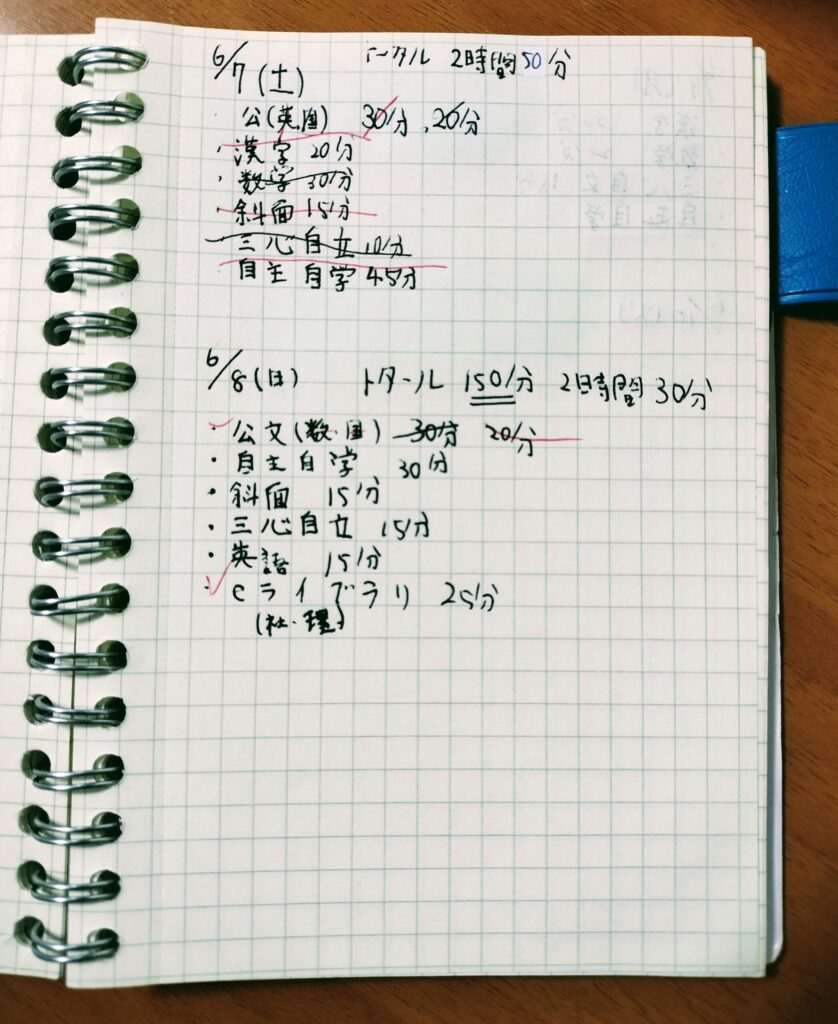 6/7(土) トータル 2時間50分
・公(英.国) 30分, 20分
・漢字 20分
・数学 30分
・斜面 15分
三心自立 10分
自主自学 45分
6/8(日) トータル 150分 2時間30分
・公文(数.国) 30分 20分
・自主自学 30分
・斜面 15分
・三心自立 15分
・英語 15分
・eライブラリ 25分
(社・理)